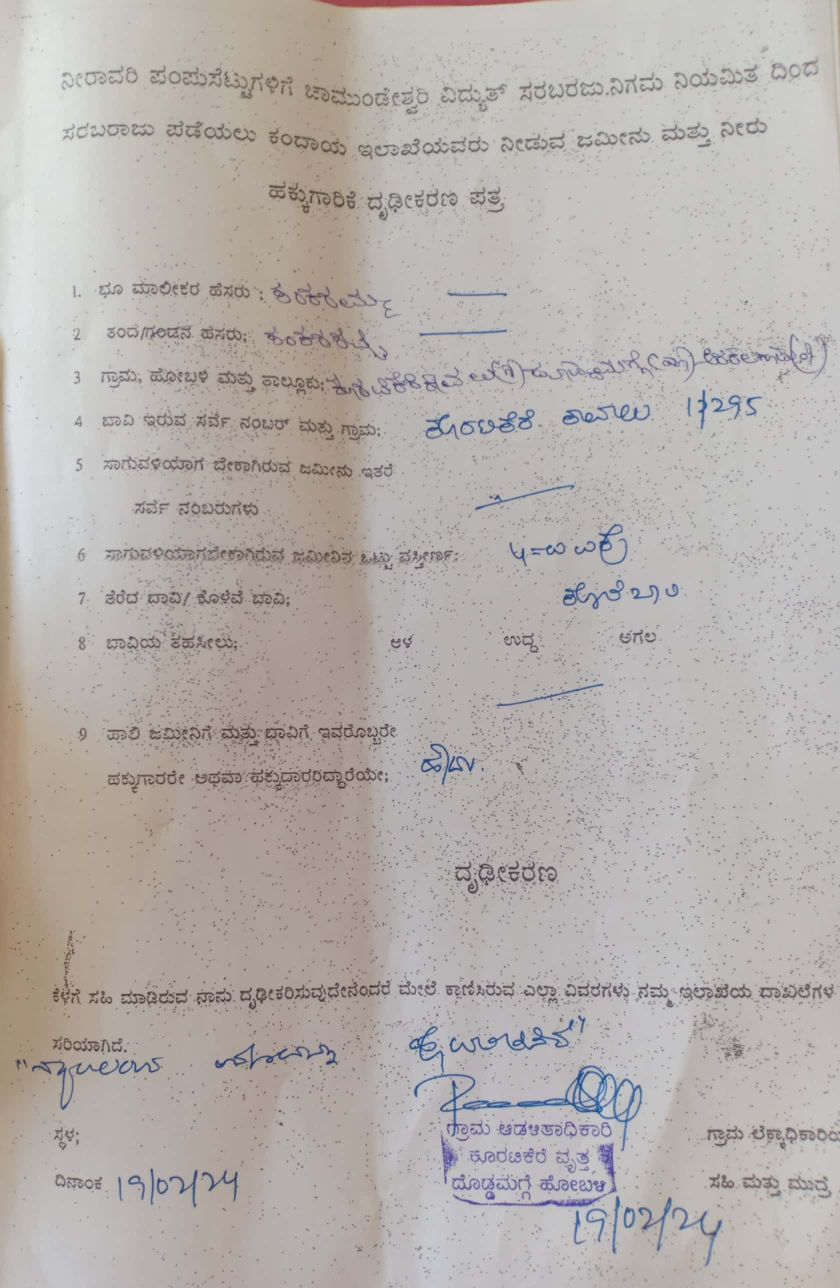 ನೀರಾವರಿ ಪಂಪುಸೆಟ್ಟುಗಳಿಗೆ ಚಾಮುಂಡೇಶ್ವರಿ ವಿದ್ಯುತ್ ಸರಬರಜು.ನಿಗಮ ನಿಯಮಿತ ದಿಂದ
ಸರಬರಾಜು ಪಡೆಯಲು ಕಂದಾಯ ಇಲಾಖೆಯವರು ನೀಡುವ ಜಮೀನು ಮತ್ತು ನೀರು
ಹಕ್ಕುಗಾರಿಕೆ ದೃಢೀಕರಣ ಪತ್ರ
1. ಭೂ ಮಾಲೀಕರ ಹೆಸರು :
2 ತಂದೆ/ಗಂಡನ ಹೆಸರು;
3 ಗ್ರಾಮ, ಹೋಬಳಿ ಮತ್ತು ತಾಲ್ಲೂಕು;
4 ಬಾವಿ ಇರುವ ಸರ್ವೆ ನಂಬರ್ ಮತ್ತು ಗ್ರಾಮ; ಕೊರಟಿಕೆರೆ ಕಾವಲು 1/295
5 ಸಾಗುವಳಿಯಾಗ ಬೇಕಾಗಿರುವ ಜಮೀನು ಇತರೆ
ಸರ್ವೆ ನಂಬರುಗಳು
6 ಸಾಗುವಳಿಯಾಗಬೇಕಾಗಿರುವ ಜಮೀನಿನ ಒಟ್ಟು ವಿಸ್ತೀರ್ಣ:
7 ತೆರೆದ ಬಾವಿ/ ಕೊಳವೆ ಬಾವಿ;
8 ಬಾವಿಯ ತಹಸೀಲು; ಆಳ ಉದ್ದ ಅಗಲ
9 ಹಾಲಿ ಜಮೀನಿಗೆ ಮತ್ತು ಬಾವಿಗೆ ಇವರೊಬ್ಬರೇ
ಹಕ್ಕುಗಾರರೇ ಅಥವಾ ಹಕ್ಕುದಾರರಿದ್ದಾರೆಯೇ; ಹೌದು.
ದೃಢೀಕರಣ
ಕೆಳಗೆ ಸಹಿ ಮಾಡಿರುವ ನಾನು ದೃಢೀಕರಿಸುವುದೇನೆಂದರೆ ಮೇಲೆ ಕಾಣಿಸಿರುವ ಎಲ್ಲಾ ವಿವರಗಳು ನಮ್ಮ ಇಲಾಖೆಯ ದಾಖಲೆಗಳ
ಸರಿಯಾಗಿದೆ.
ಸ್ಥಳ; ಗ್ರಾಮ ಆಡಳಿತಾಧಿಕಾರಿ ಗ್ರಾಮ ಲೆಕ್ಕಾಧಿಕಾರಿಯ
ಕೂರಟಿಕೆರೆ ವೃತ್ತ
ದಿನಾಂಕ 19/02/24 ದೊಡ್ಡಮಗ್ಗೆ ಹೋಬಳಿ ಸಹಿ ಮತ್ತು ಮುದ್ರೆ
19/02/24